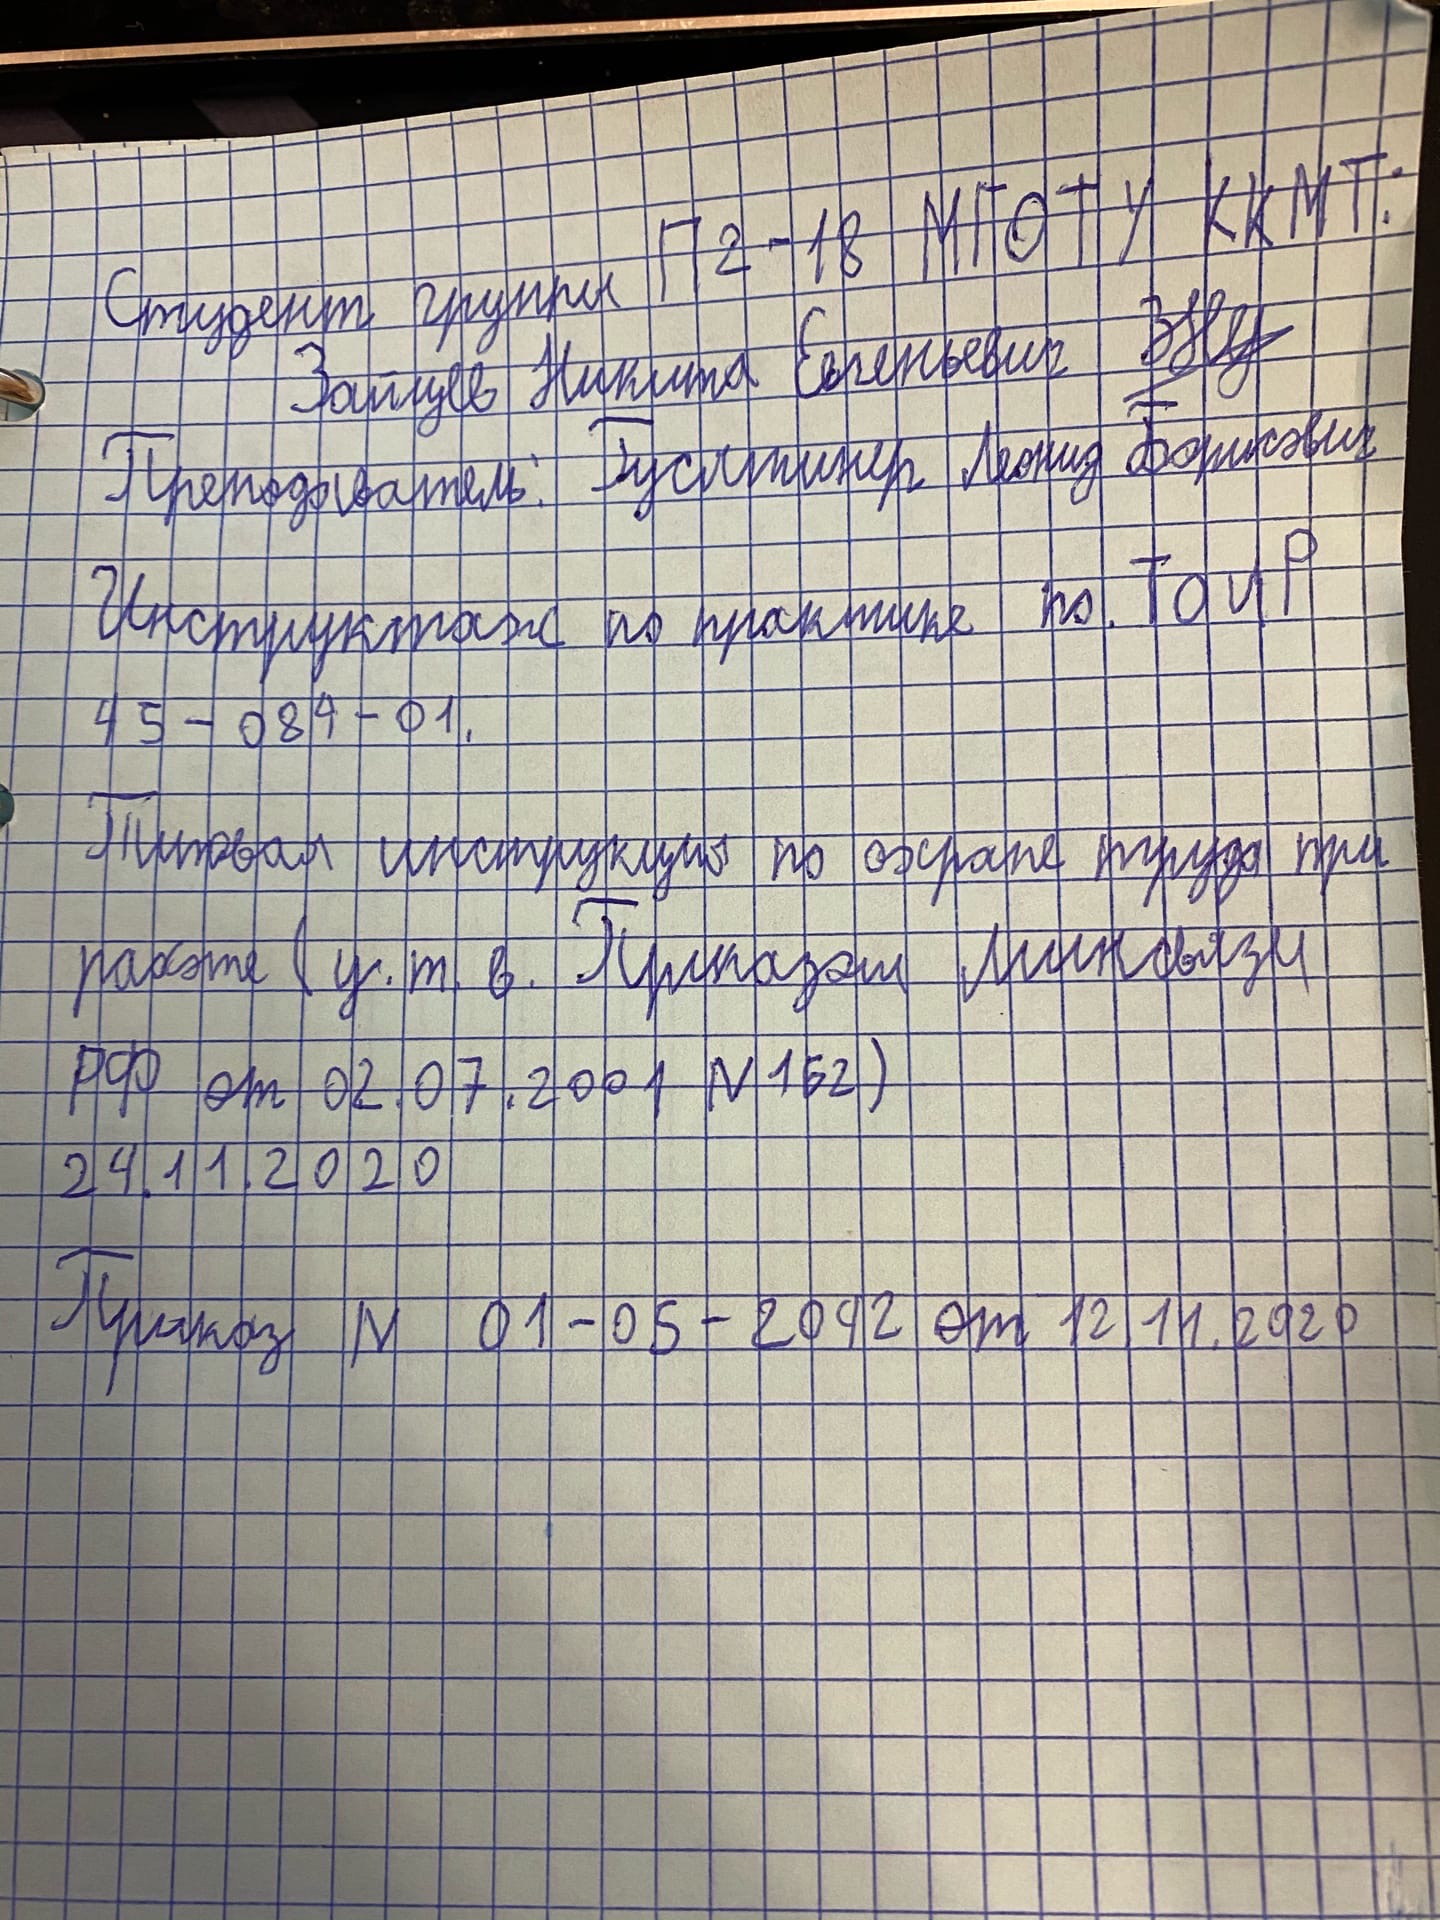 Студент группы П2-18 МГОТУ ККМТ:
Зайцев Никита Евгеньевич
Преподаватель: Гуслятинер Леонид Борисович
Инструктаж по практике по ТОиР
45-084-01.
Типовая инструкция по охране труда при
работе (у.т.в. Приказом Минсвязи
РФ от 02.07.2001 N 162)
24.11.2020
Приказ N 01-05-2042 от 12.11.2020